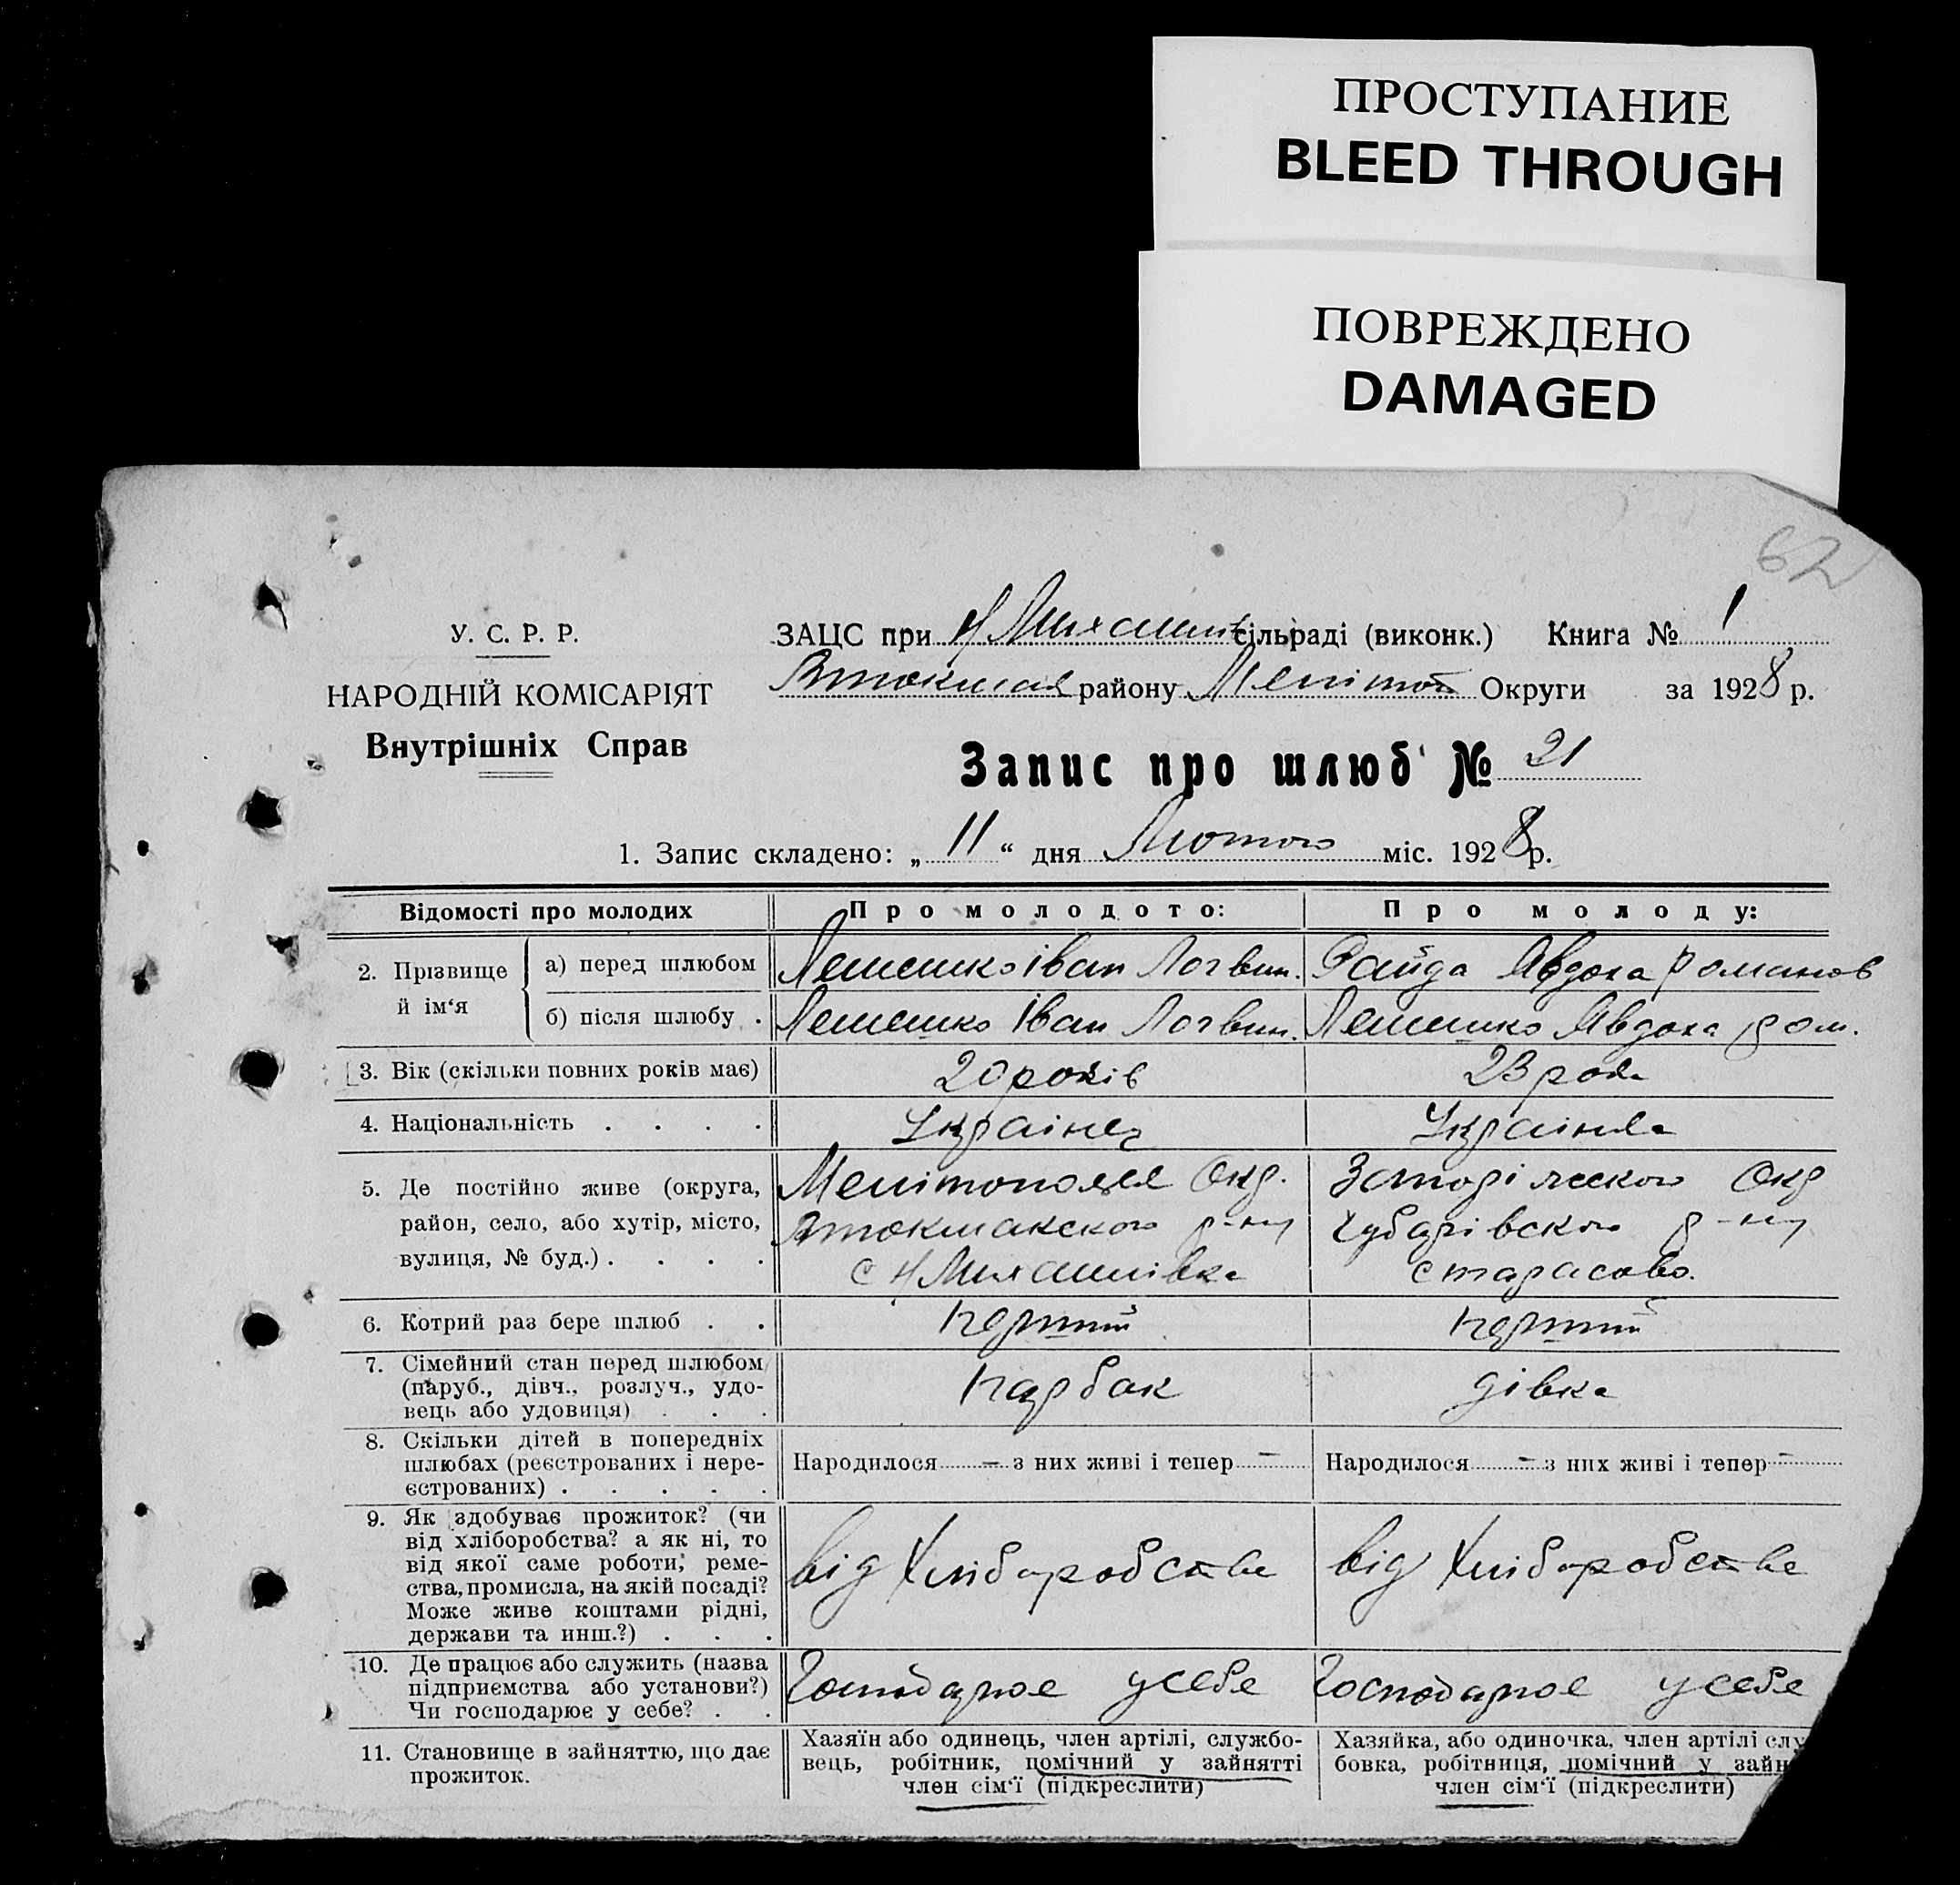 ПРОСТУПАНИЕ
BLEED THROUGH
ПОВРЕЖДЕНО
DAMAGED
62
У. С. Р. Р.
НАРОДНІЙ КОМІСАРІЯТ
Внутрішніх Справ
ЗАЦС при Н Михайлів сільраді (виконк.) Книга № 1
району Меліто Округи за 1928 р.
Запис про шлюб № 21
1. Запис складено: „ 11 “ дня Лютого міс. 1928 р.
Відомості про молодих
Про молодого:
Про молоду:
2. Прізвище й ім‘я
а) перед шлюбом
Лемешко Іван Логвин.
Файда Явдоха Романов
б) після шлюбу .
Лемешко Іван Логвин.
Лемешко Явдоха Ром.
3. Вік (скільки повних років має)
20 років
23 рока
4. Національність . . . .
Українец
Українка
5. Де постійно живе (округа,
район, село, або хутір, місто,
вулиця, № буд.) . . . .
Окр.
Втокмакского р-ну
с Н Михайлівка
Окр
Чубарівского р-ну
с тарасовк.
6. Котрий раз бере шлюб . .
перший
перший
7. Сімейний стан перед шлюбом
(паруб., дівч., розлуч., удо-
вець або удовиця) . . .
парбак
дівка
8. Скільки дітей в попередніх
шлюбах (реєстрованих і нере-
єстрованих) . . . . .
Народилося – з них живі і тепер –
Народилося – з них живі і тепер –
9. Як здобуває прожиток? (чи
від хліборобства? а як ні, то
від якої саме роботи, реме-
ства, промисла, на якій посаді?
Може живе коштами рідні,
держави та инш.?) . . .
від Хліборобства
від Хліборобства
10. Де працює або служить (назва
підприємства або установи?)
Чи господарює у себе? . .
Господарює у себе
Господарює у себе
11. Становище в зайняттю, що дає
прожиток.
Хазяїн або одинець, член артілі, службо-
вець, робітник, помічний у зайнятті
член сім‘ї (підкреслити)
Хазяйка, або одиночка, член артілі слу
бовка, робітниця, помічний у зайн
член сім‘ї (підкреслити)